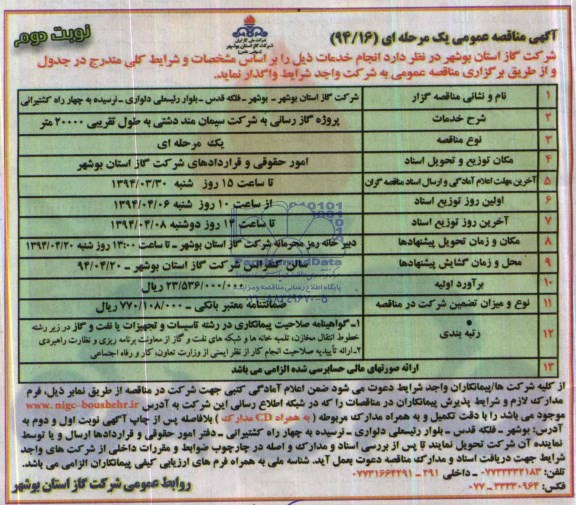 نوبت دوم
شرکت ملی گاز ایران
شرکت گاز استان بوشهر
(سهامی خاص)
آگهی مناقصه عمومی یک مرحله ای (۹۴/۱۶)
شرکت گاز استان بوشهر در نظر دارد انجام خدمات ذیل را بر اساس مشخصات و شرایط کلی مندرج در جدول
و از طریق برگزاری مناقصه عمومی به شرکت واجد شرایط واگذار نماید.
۱ نام و نشانی مناقصه گزار شرکت گاز استان بوشهر ـ بوشهر ـ فلکه قدس ـ بلوار رئیسعلی دلواری ـ نرسیده به چهار راه کشتیرانی
۲ شرح خدمات پروژه گاز رسانی به شرکت سیمان مند دشتی به طول تقریبی ۲۰۰۰۰ متر
۳ نوع مناقصه یک مرحله ای
۴ مکان توزیع و تحویل اسناد امور حقوقی و قراردادهای شرکت گاز استان بوشهر
۵ آخرین مهلت اعلام آمادگی و ارسال اسناد مناقصه گران تا ساعت ۱۵ روز شنبه ۱۳۹۴/۰۳/۳۰
۶ اولین روز توزیع اسناد از ساعت ۱۰ روز شنبه ۱۳۹۴/۰۴/۰۶
۷ آخرین روز توزیع اسناد تا ساعت ۱۴ روز دوشنبه ۱۳۹۴/۰۴/۰۸
۸ مکان و زمان تحویل پیشنهادها دبیر خانه رمز محرمانه شرکت گاز استان بوشهر ـ تا ساعت ۱۳:۰۰ روز شنبه ۱۳۹۴/۰۴/۲۰
۹ محل و زمان گشایش پیشنهادها سالن کنفرانس شرکت گاز استان بوشهر ـ ۹۴/۰۴/۲۰
۱۰ برآورد اولیه ۲۳/۵۳۶/۰۰۰/۰۰۰ ریال
۱۱ نوع و میزان تضمین شرکت در مناقصه ضمانتنامه معتبر بانکی ـ ۷۷۰/۱۰۸/۰۰۰ ریال
۱۲ رتبه بندی ۱ـ گواهینامه صلاحیت پیمانکاری در رشته تاسیسات و تجهیزات یا نفت و گاز در زیر رشته
خطوط انتقال مخازن، تلمبه خانه ها و شبکه های نفت و گاز از معاونت برنامه ریزی و نظارت راهبردی
۲ـ ارائه تأییدیه صلاحیت انجام کار از نظر ایمنی از وزارت تعاون، کار و رفاه اجتماعی
۱۳ ارائه صورتهای مالی حسابرسی شده الزامی می باشد
از کلیه شرکت ها/پیمانکاران واجد شرایط دعوت می شود ضمن اعلام آمادگی کتبی جهت شرکت در مناقصه از طریق نمابر ذیل، فرم
مدارک لازم و شرایط پذیرش پیمانکاران در مناقصات را که در شبکه اطلاع رسانی این شرکت به آدرس www.nigc-boushehr.ir
موجود می باشد را با دقت تکمیل و به همراه مدارک مربوطه (به همراه CD مدارک) بلافاصله پس از چاپ آگهی نوبت اول و دوم به
آدرس: بوشهر ـ فلکه قدس ـ بلوار رئیسعلی دلواری ـ نرسیده به چهار راه کشتیرانی ـ دفتر امور حقوقی و قراردادها ارسال و یا توسط
نماینده آن شرکت تحویل نمایند تا پس از بررسی اسناد و مدارک و اصله در چارچوب ضوابط و مقررات داخلی از شرکت های واجد
شرایط جهت دریافت اسناد و مدارک مناقصه دعوت بعمل آید. شناسه ملی به همراه فرم های ارزیابی کیفی پیمانکاران الزامی می باشد.
تلفن: ۰۷۷۳۳۳۳۲۱۸۳ ـ داخلی ۲۹۱ ـ ۰۷۷۳۱۶۶۴۲۹۱
فکس: ۳۳۳۳۰۹۶۲ ـ ۰۷۷
روابط عمومی شرکت گاز استان بوشهر